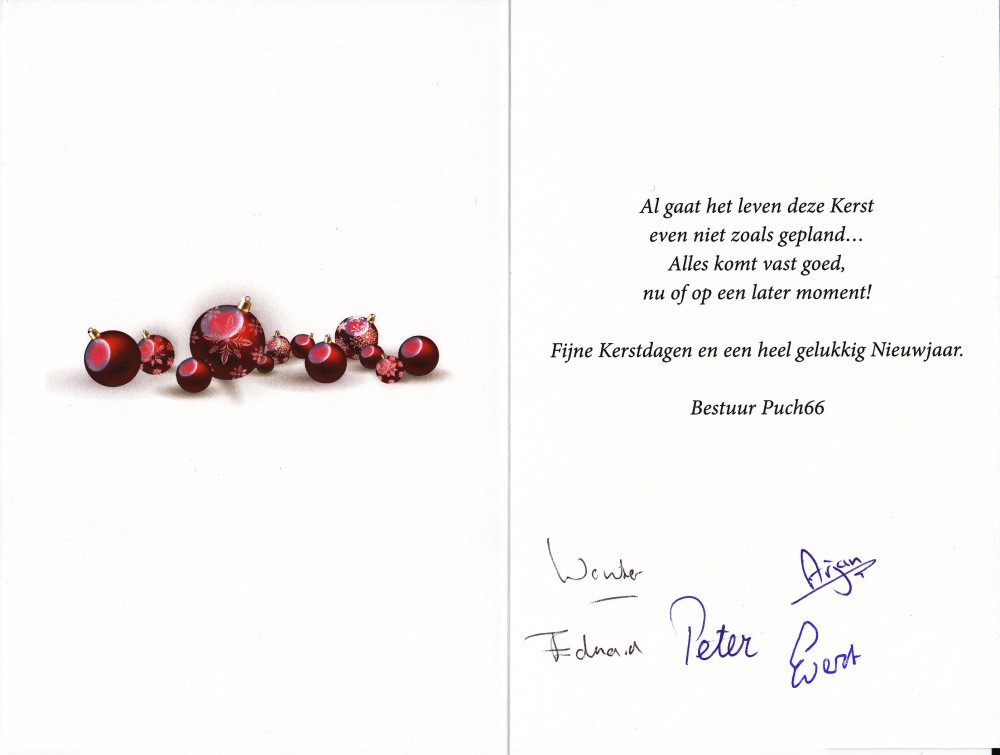 Al gaat het leven deze Kerst
even niet zoals gepland…
Alles komt vast goed,
nu of op een later moment!
Fijne Kerstdagen en een heel gelukkig Nieuwjaar.
Bestuur Puch66
Wouter
Arjan
Peter
Evert